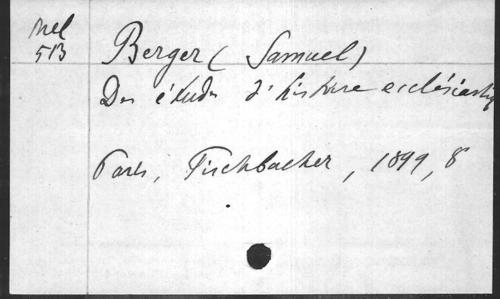 Mel
513
Berger (Samuel)
Des études d'histoire ecclésiastiq
Paris, Fischbacher, 1899, 8